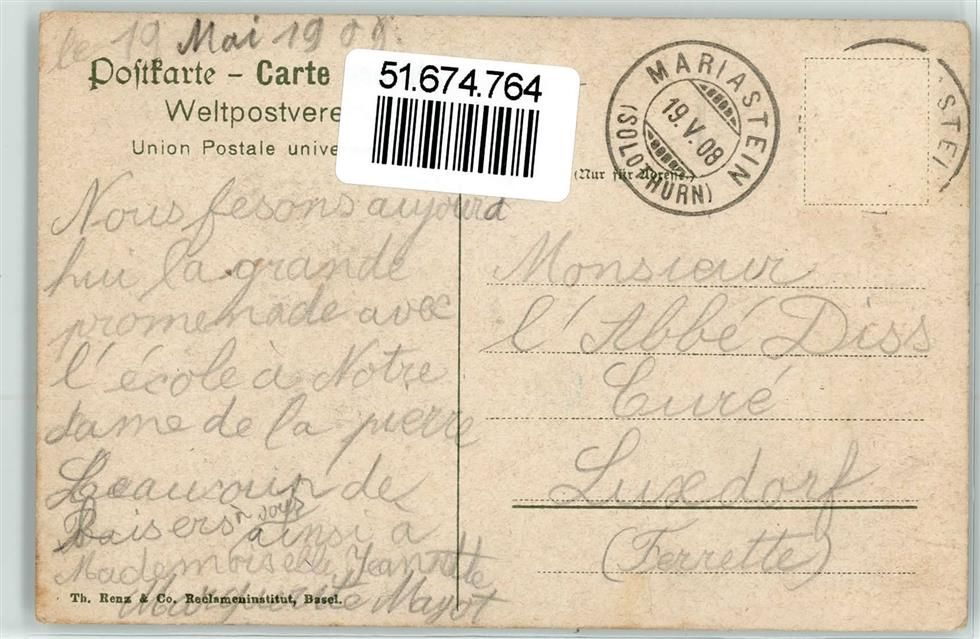 le 19 Mai 1908.
Postkarte – Carte
Weltpostvere
Union Postale unive
51.674.764
MARIASTEIN
19.V.08
(SOLOTHURN)
STEIN
(Nur für Adresse.)
Nous fesons aujourd
hui la grande
promenade avec
l'école à Notre
dame de la pierre
Beaucoup de
Baisers à vous ainsi à
Mademoiselle Jeannette
Marguerite Mayot
Th. Renz & Co. Reclameninstitut, Basel.
Monsieur
l'Abbé Diss
Curé
Luxdorf
(Ferrette)